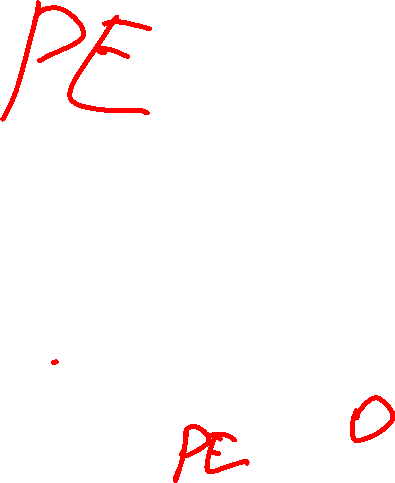 PE
PE O